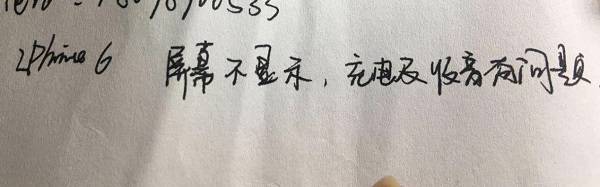 iPhone 6 屏幕不显示，充电及收音有问题